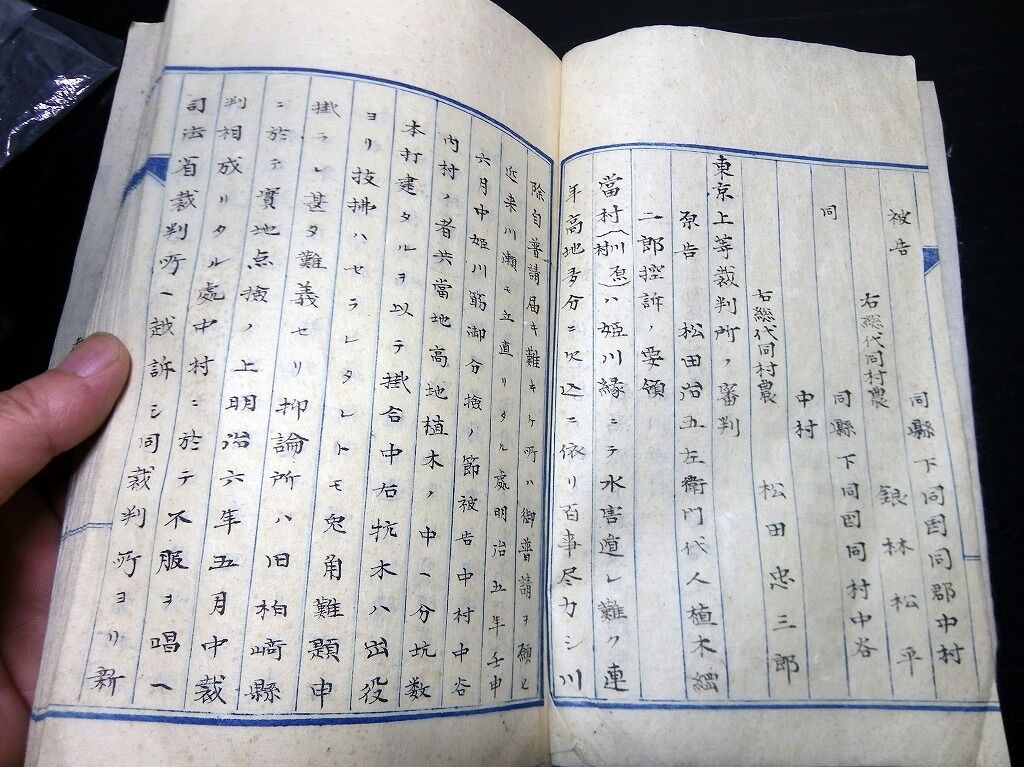 同縣下同国同郡中村
被告 銀林松平
右総代同村農
同縣下同国同村中谷
同
中村
右総代同村農 松田忠三郎
東京上等裁判所ノ審判
原告 松田治五左衛門代人植木綱
二郎控訴ノ要領
當村(川原村)ハ姫川縁ニテ水害遁レ難ク連
年高地多分ニ欠込ニ依リ百事尽力シ川
除自普請届キ難キケ所ハ御普請ヲ願ヒ
近来川瀬モ立直リタル處明治五年壬申
六月中姫川筋御分検ノ節被告中村中谷
内村ノ者共當地高地植木ノ中ヘ分坑数
本打建タルヲ以テ掛合中右抗木ハ出役
ヨリ技拂ハセラレタレトモ兎角難題申
掛ラレ甚タ難義セリ抑論所ハ旧柏﨑縣
ニ於テ實地点検ノ上明治六年五月中裁
判相成リタル處中村ニ於テ不服ヲ唱ヘ
司法省裁判所ヘ越訴シ同裁判所ヨリ新